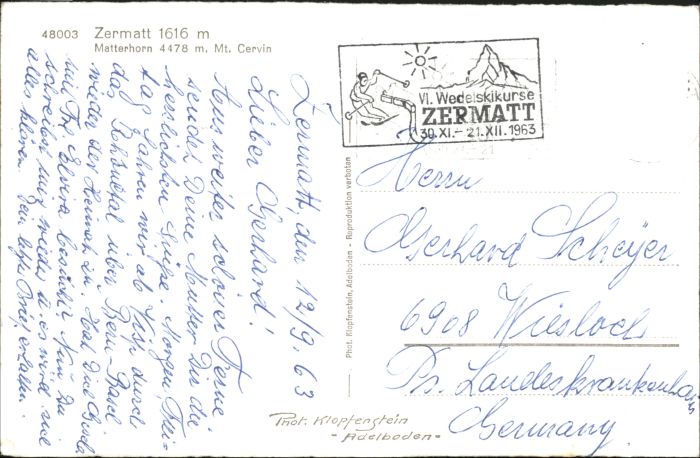 48003 Zermatt 1616 m
Matterhorn 4478 m, Mt. Cervin
VI. Wedelskikurse
ZERMATT
30.XI.–21.XII.1963
Zermatt, den 12/9. 63
Lieber Gerhard!
Aus weiter schöner Ferne
sendet Deine Mutter Dir die
herzlichsten Grüße. Morgen, Frei-
tag fahren wir ab Visp durch
das Rhônetal über Bern-Basel
wieder der Heimat zu. Hat Dein Besuch
mit Frl. Elvira Du
schreibst mir wieder es wird sich
alles klären. Den Brief erhalten.
Phot. Klopfenstein, Adelboden - Reproduktion verboten
Herrn
Gerhard Scheÿer
6908 Wiesloch
Ps. Landeskrankenhaus
Germany.
Phot. Klopfenstein
- Adelboden -